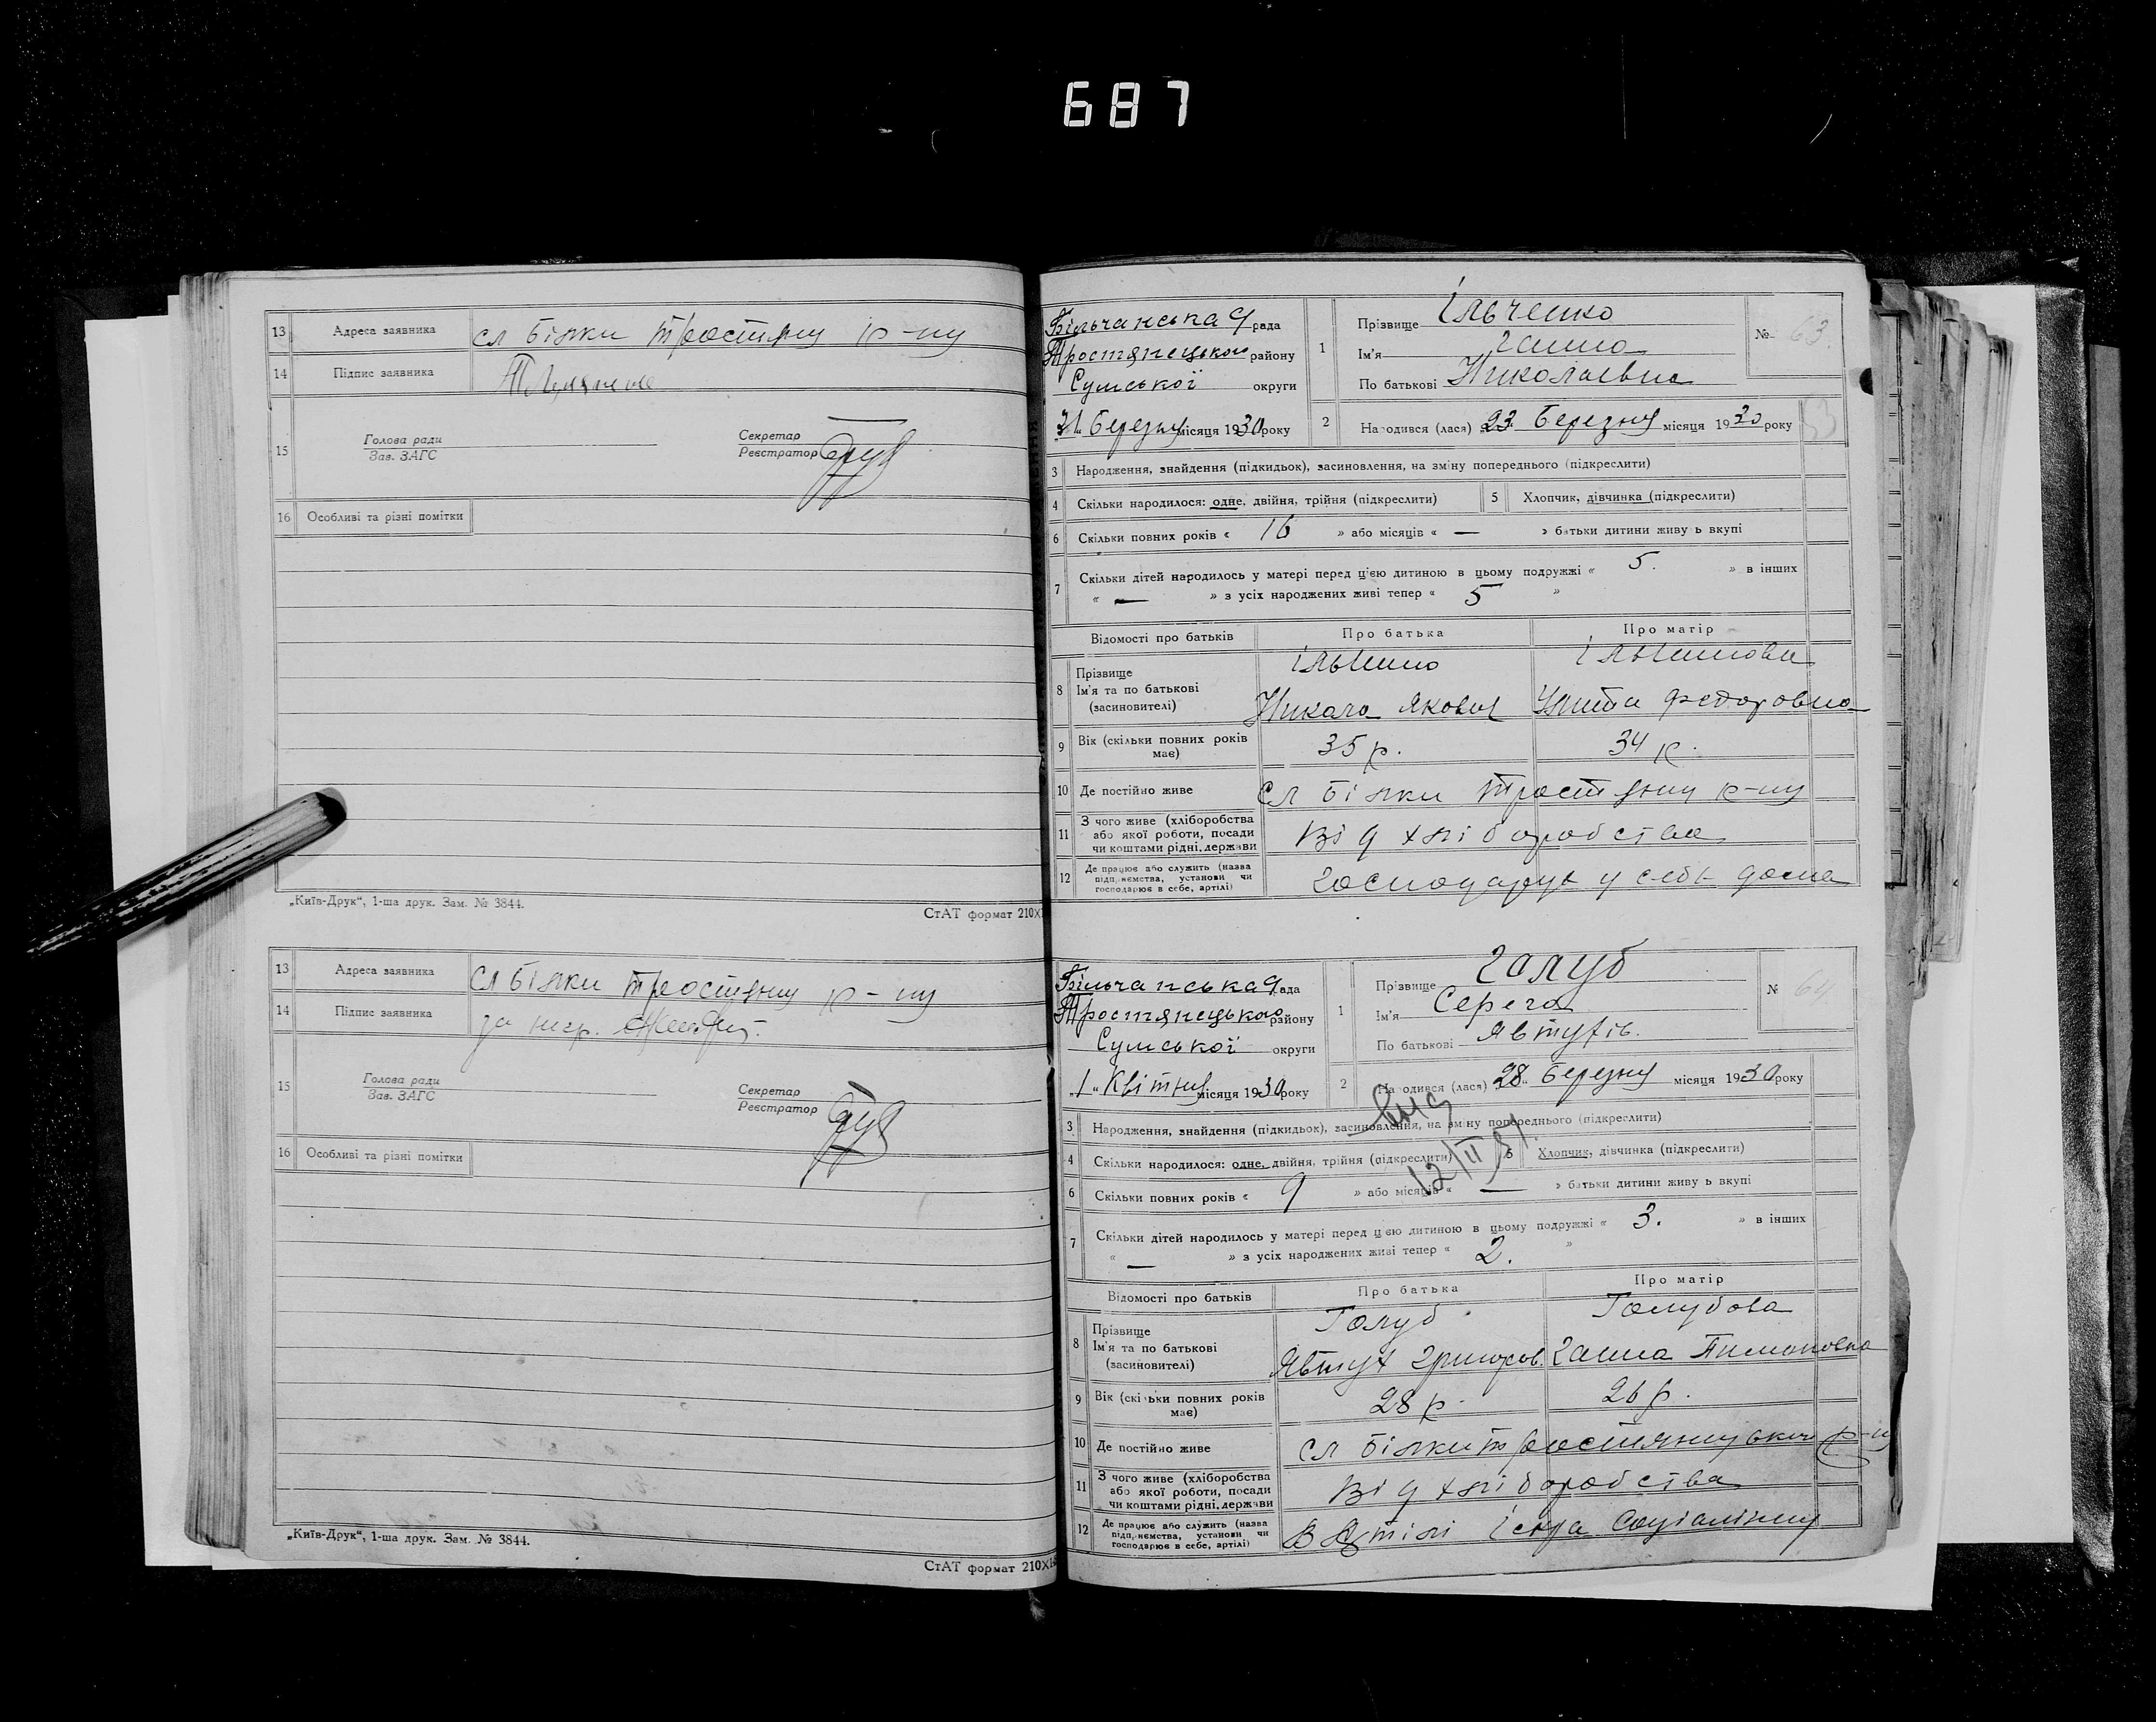 687
13 Адреса заявника сл Білки Тростянц р-ну
14 Підпис заявника
15 Голова ради Зав. ЗАГС Секретар Реєстратор
16 Особливі та різні помітки
„Київ-Друк“, 1-ша друк. Зам. № 3844.
СтАТ формат 210X
Більчанська рада
Тростянецького району
Сумської округи
31 Березня місяця 1930 року
1 Прізвище Ільченко
Ім'я Ганна
По батькові Николаевна
№ 63.
2 Народився (лася) 23 Березня місяця 1930 року
3 Народження, знайдення (підкидьок), засиновлення, на зміну попереднього (підкреслити)
4 Скільки народилося: одне, двійня, трійня (підкреслити) 5 Хлопчик, дівчинка (підкреслити)
6 Скільки повних років « 16 » або місяців « — » батьки дитини живу ь вкупі
7 Скільки дітей народилось у матері перед цією дитиною в цьому подружжі « 5. » в інших
« — » з усіх народжених живі тепер « 5 »
Відомості про батьків Про батька Про матір
8 Прізвище Ім'я та по батькові (засновителі) Ільченко Никола Якович Ільченкова Улита Федоровна
9 Вік (скільки повних років має) 35 р. 34 р.
10 Де постійно живе Сл Білки Тростянц р-ну
11 З чого живе (хліборобства або якої роботи, посади чи коштами рідні, держави Від хліборобства
12 Де працює або служить (назва підприємства, установи чи господарює в себе, артілі) Господарує у себе дома
13 Адреса заявника Сл Білки Тростянц р-ну
14 Підпис заявника за непр.
15 Голова ради Зав. ЗАГС Секретар Реєстратор
16 Особливі та різні помітки
„Київ-Друк“, 1-ша друк. Зам. № 3844.
СтАТ формат 210X
Більчанська рада
Тростянецького району
Сумської округи
„1„ Квітня місяця 1930 року
1 Прізвище Голуб
Ім'я Серега
По батькові Явтухів.
№ 64.
2 Народився (лася) 28 Березня місяця 1930 року
3 Народження, знайдення (підкидьок), засиновлення, на зміну попереднього (підкреслити)
12/II 51
4 Скільки народилося: одне, двійня, трійня (підкреслити) 5 Хлопчик, дівчинка (підкреслити)
6 Скільки повних років « 9 » або місяців « — » батьки дитини живу ь вкупі
7 Скільки дітей народилось у матері перед цією дитиною в цьому подружжі « 3. » в інших
« — » з усіх народжених живі тепер « 2. »
Відомості про батьків Про батька Про матір
8 Прізвище Ім'я та по батькові (засновителі) Голуб Явтух Григоров. Голубова Ганна Пимоновна
9 Вік (скільки повних років має) 28 р. 26 р.
10 Де постійно живе Сл Білки Тростянецького р-ну
11 З чого живе (хліборобства або якої роботи, посади чи коштами рідні, держави Від хліборобства
12 Де працює або служить (назва підприємства, установи чи господарює в себе, артілі) В Артілі Іскра Соціалізму